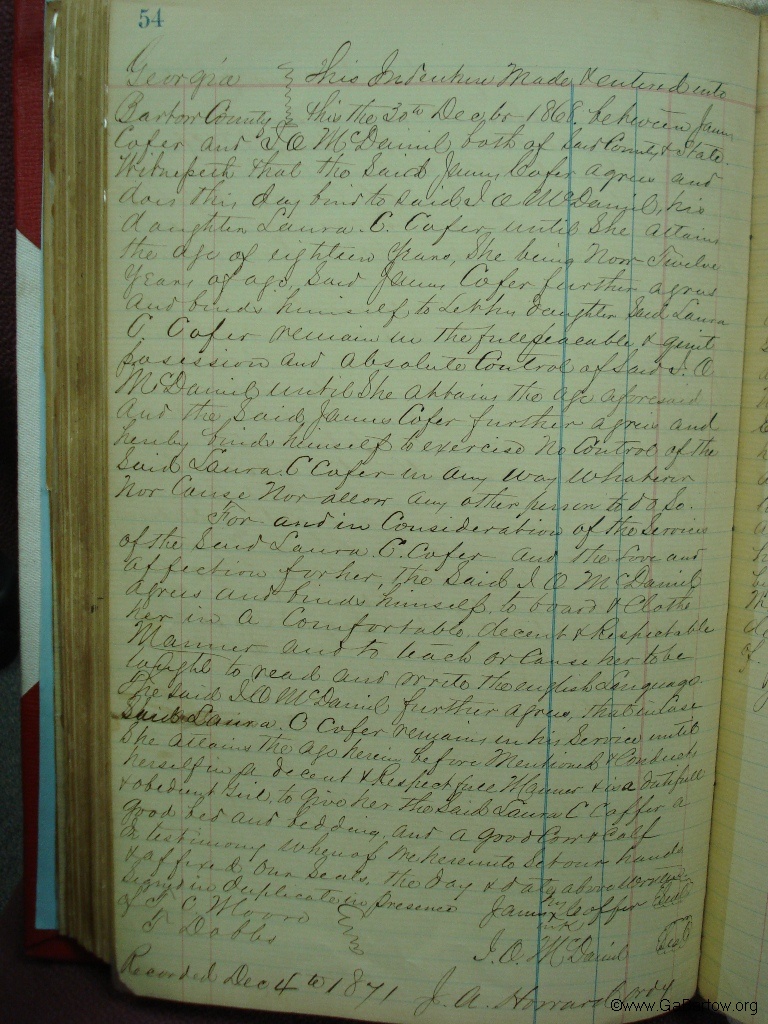 54
Georgia This Indenture Made & entered into
Bartow County this the 30th Decbr 1868. between James
Cofer and I O McDaniel both of Said County & State.
Witnesseth that the Said James Cofer agrees and
does this day bind to said I O McDaniel, his
daughter Laura. C. Cofer, until She attains
the age of eighteen years, She being Now Twelve
Years of age, Said James Cofer further agrees
and binds himself to let his daughter Said Laura
C Cofer remain in the full peaceable & quiet
posession and absolute Control of Said I. O.
McDaniel until She attains the age aforesaid
And the Said James Cofer further agrees and
hereby binds himself to exercise No Control of the
Said Laura. C Cofer in any way whatever
Nor Cause Nor allow any other person to do So.
For and in Consideration of the Service
of the Said Laura. C. Cofer and the love and
affection for her, the Said I O McDaniel
agrees and binds himself, to board & Clothe
her in a Comfortable, decent & Respectable
Manner and to teach or Cause her to be
taught to read and write the english Language.
The said I O McDaniel further agrees, that in Case
Said Laura. C Cofer remains in his Service until
She attains the age herein before Mentioned & Conducts
herself in a decent & Respectfull Manner & is a dutifull
& obedient Girl, to give her the Said Laura C Coffer a
good bed and bedding, and a good Cow & Calf
In testimony whereof we hereunto Set our hands
& affixed Our Seals, the day & date above written
Signed in duplicate in presence
of T C Moore
T Dobbs
James his x mark Coffer Seal
I. O. McDaniel Seal
Recorded Dec 4th 1871 J. A. Howard Ordy
©www.GaBartow.org